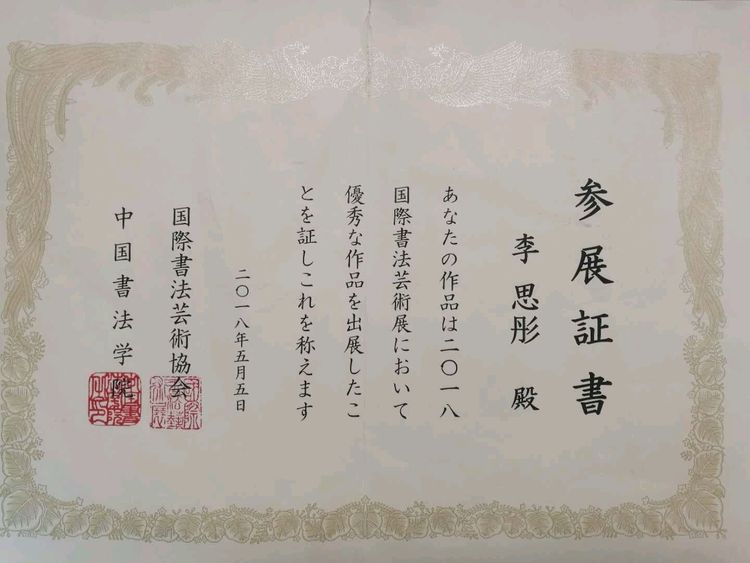 参展証書
李思彤 殿
あなたの作品は二〇一八
国際書法芸術展において
優秀な作品を出展したこ
とを証しこれを称えます
二〇一八年五月五日
国際書法芸術協会
中国書法学院